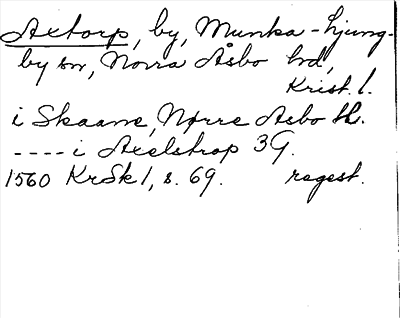 Axtorp, by, Munka-Ljung-
by sn, Norra Åsbo hd,
Krist. l.
i Skaane, Nørre Asbo H.
---- i Axelstrop 3G.
1560 KrSk 1, s. 69. regest.